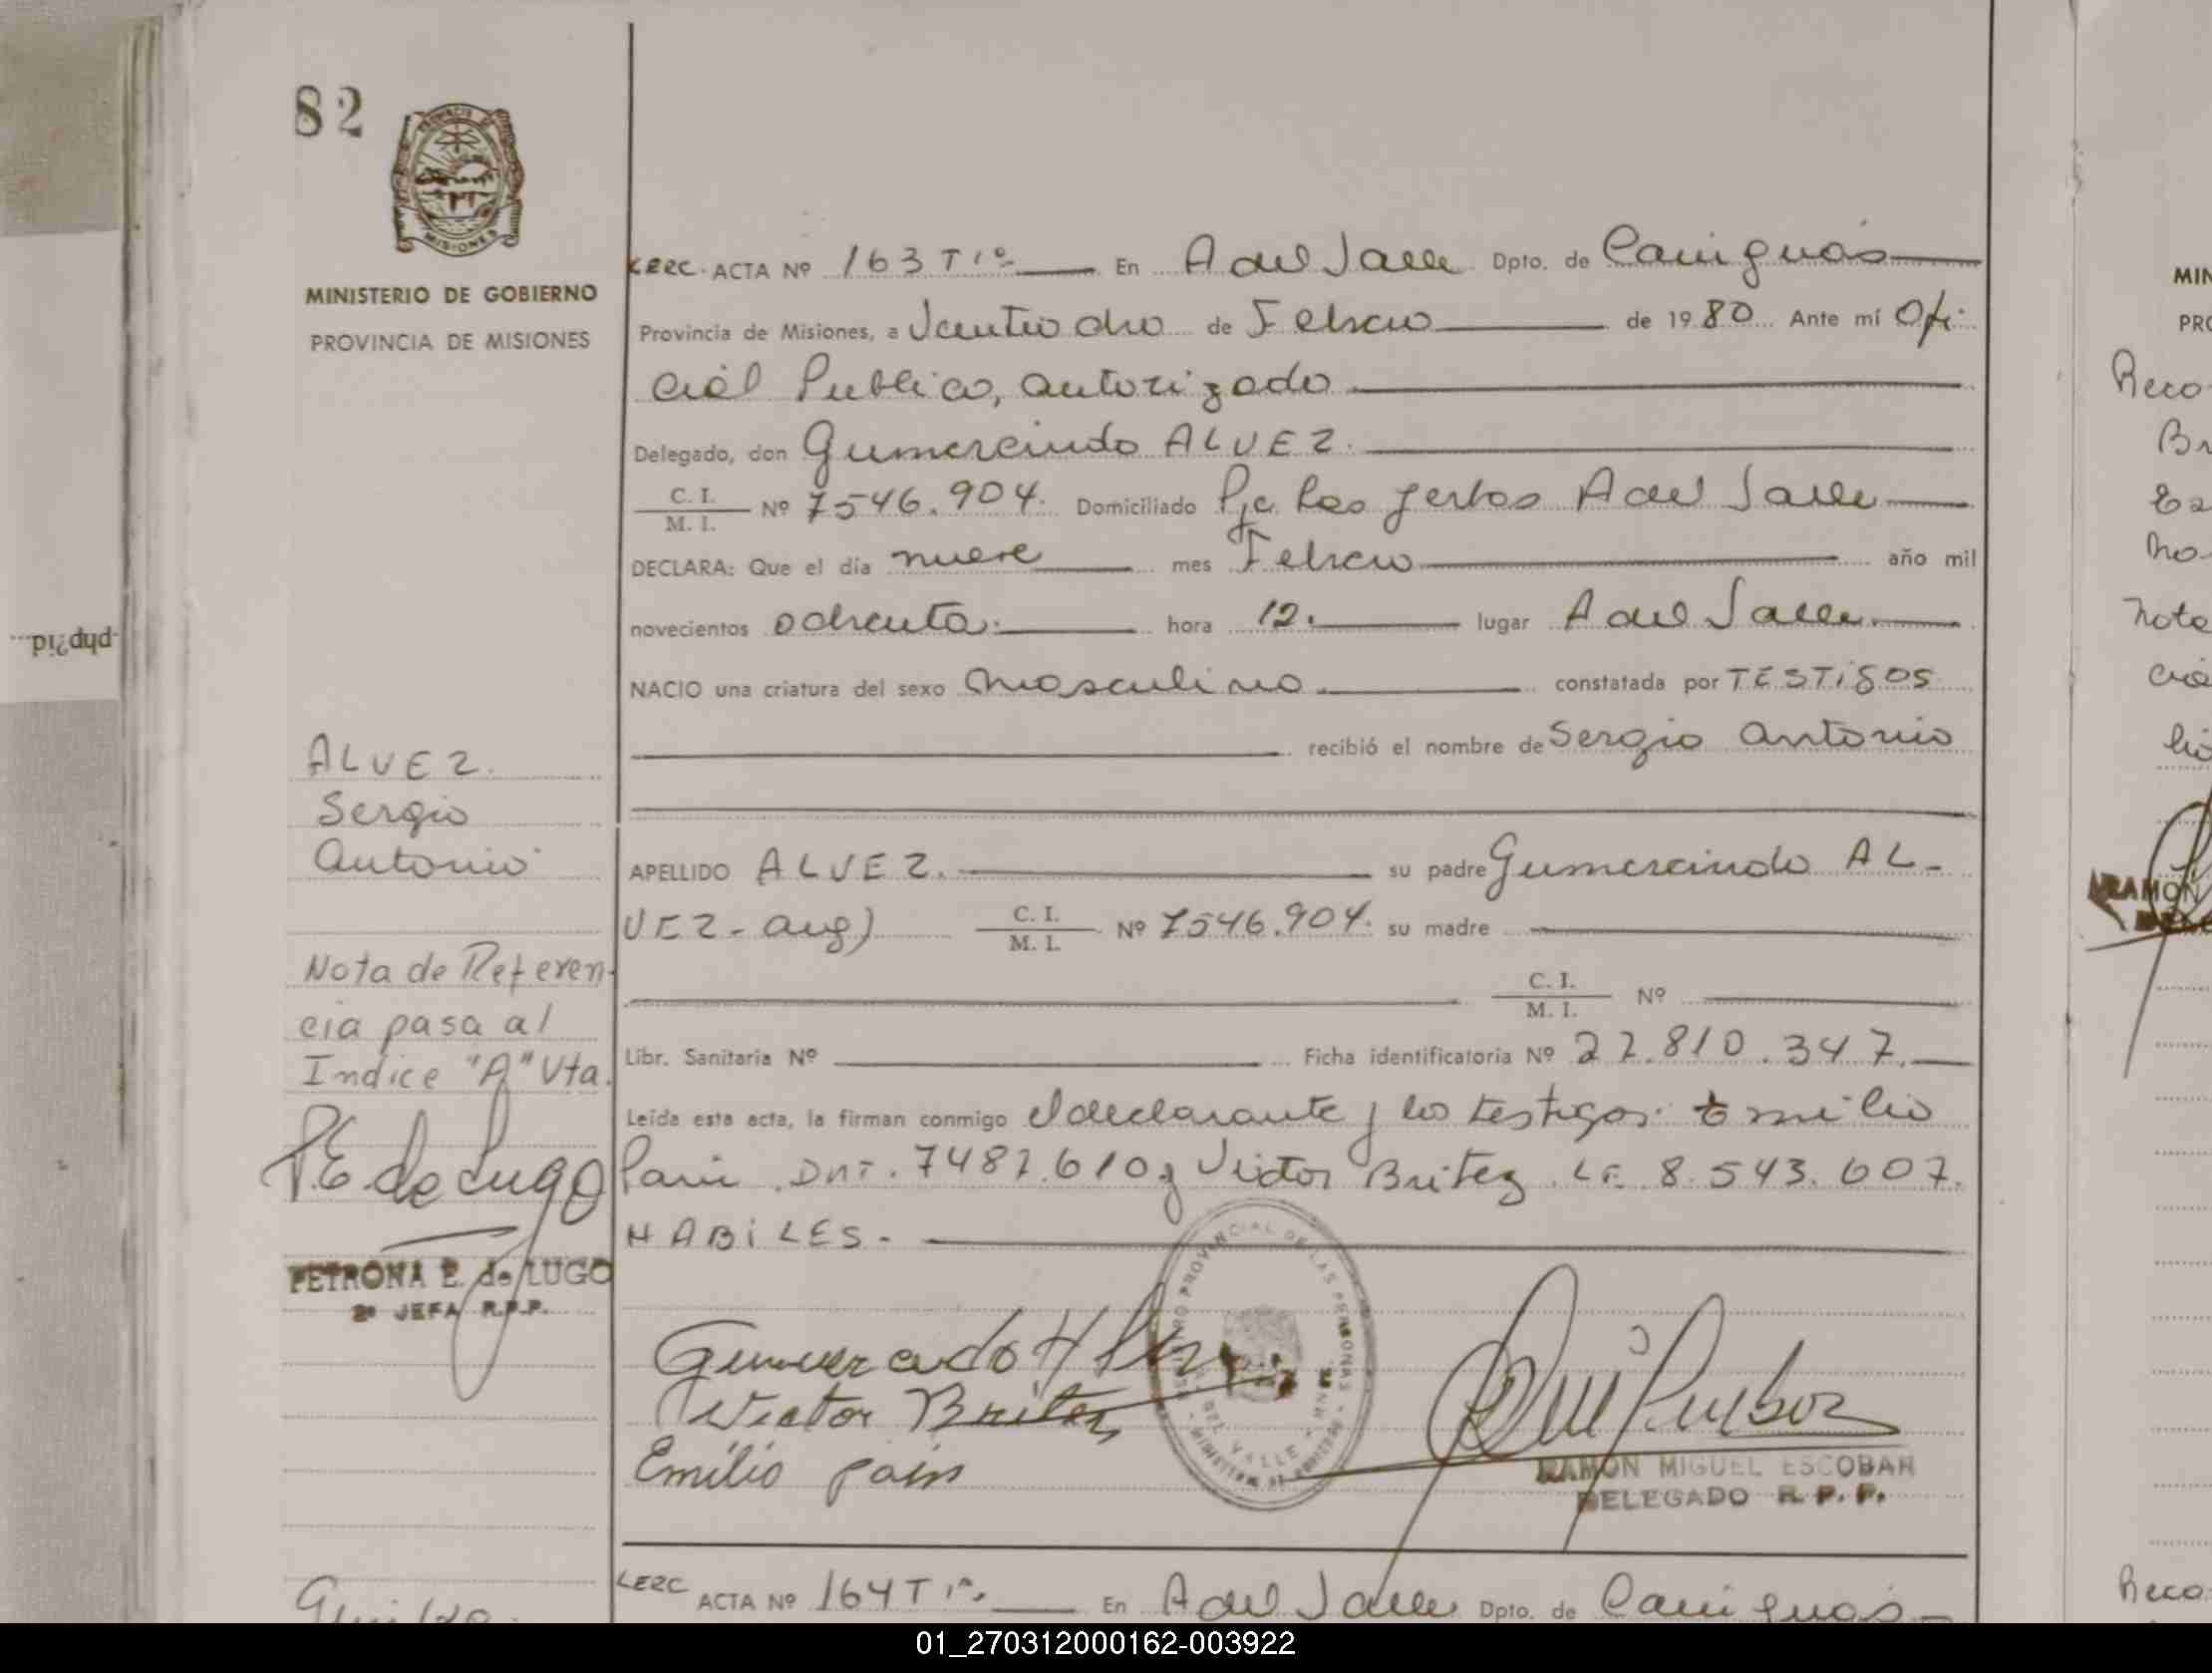 82
PROVINCIA DE
MISIONES
MINISTERIO DE GOBIERNO
PROVINCIA DE MISIONES
ALVEZ.
Sergio
Antonio
Nota de Referen-
cia pasa al
Indice "A" Vta.
P.E de Lugo
PETRONA E. de LUGO
2º JEFA R.P.P.
ACTA Nº 163 T 1º En A del Valle Dpto. de Cainguás
Provincia de Misiones, a Veintiocho de Febrero de 1980 Ante mí Ofi-
cial Publico, autorizado
Delegado, don Gumercindo ALVEZ.
C. I.
M. I. Nº 7546.904. Domiciliado Pje Las Yerbas A del Valle
DECLARA: Que el día nueve mes Febrero año mil
novecientos ochenta. hora 12. lugar A del Valle.
NACIO una criatura del sexo Masculino. constatada por TESTiGOS
recibió el nombre de Sergio Antonio
APELLIDO ALVEZ. su padre Gumercindo AL-
VEZ - arg) C. I.
M. I. Nº 7546.904. su madre
C. I.
M. I. Nº
Libr. Sanitaria Nº Ficha identificatoria Nº 27.810.347.
Leída esta acta, la firman conmigo el declarante y los testigos: Emilio
Pain DNI. 7487.610 y Victor Britez LE. 8.543.607.
HABiLES.-
Victor Britez
Emilio pain
RAMON MIGUEL ESCOBAR
DELEGADO R. P. P.
ACTA Nº 164 T 1º. En A del Valle Dpto. de Cainguás
Reco
Br
No
Nota
cia
RAMON
php?id...
01_270312000162-003922